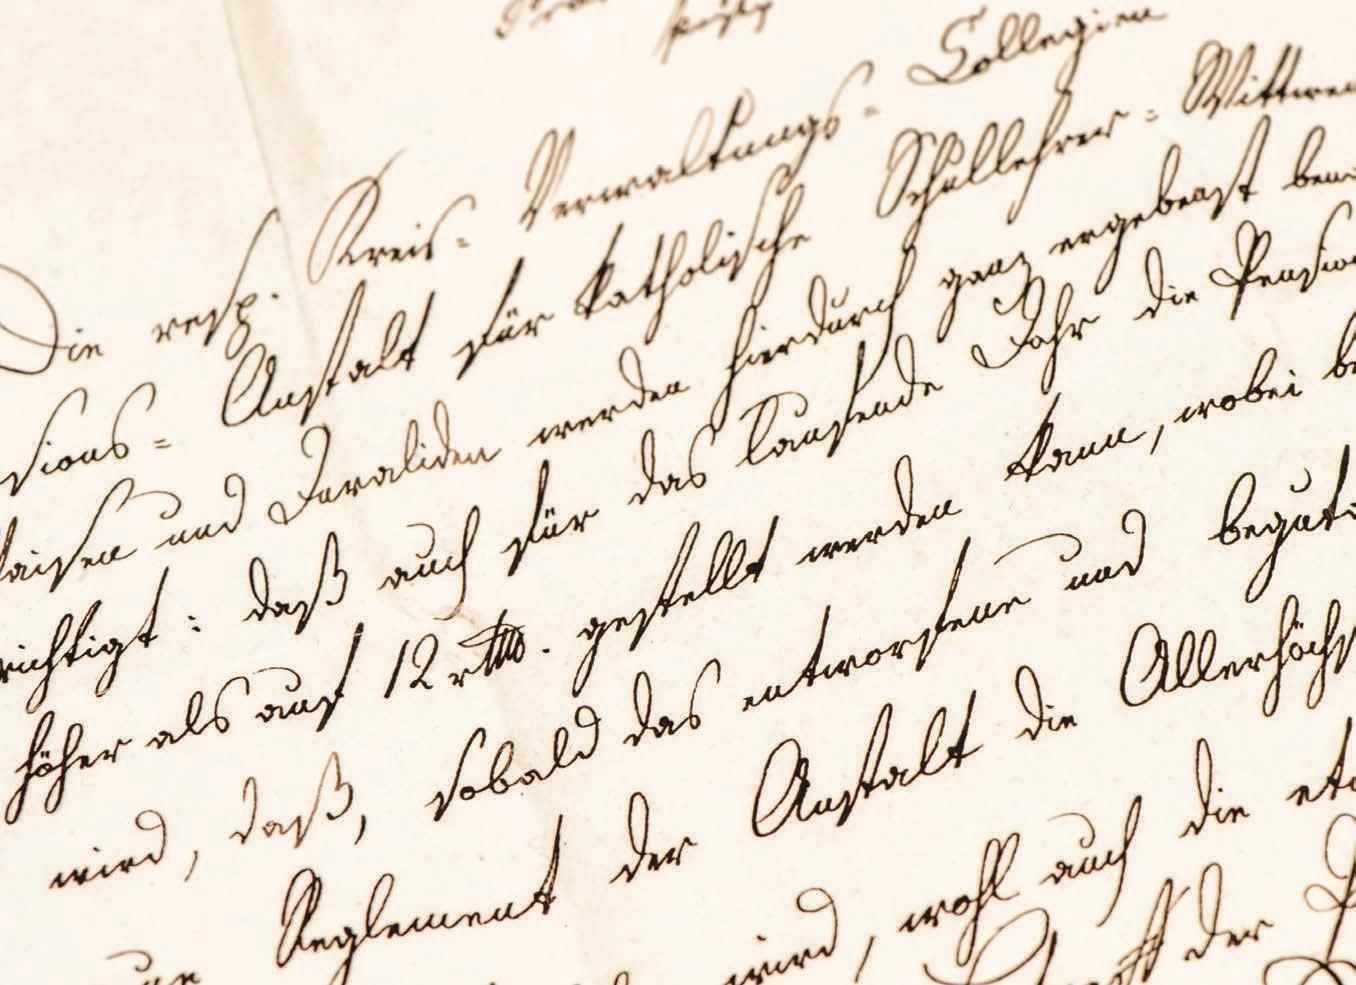 Die resp. Kreis- Verwaltungs- Collegien
sions- Anstalt für katholische Schullehrer- Wittwen
aisen und Invaliden werden hierdurch ganz ergebenst bena
richtigt: daß auch für das laufende Jahr die Pension
höher als auf 12 rthlr. gestellt werden kann, wobei be
wird, daß, sobald das entworfene und beguta
Reglement der Anstalt die Allerhöchs
wird, wohl auch die etw
der